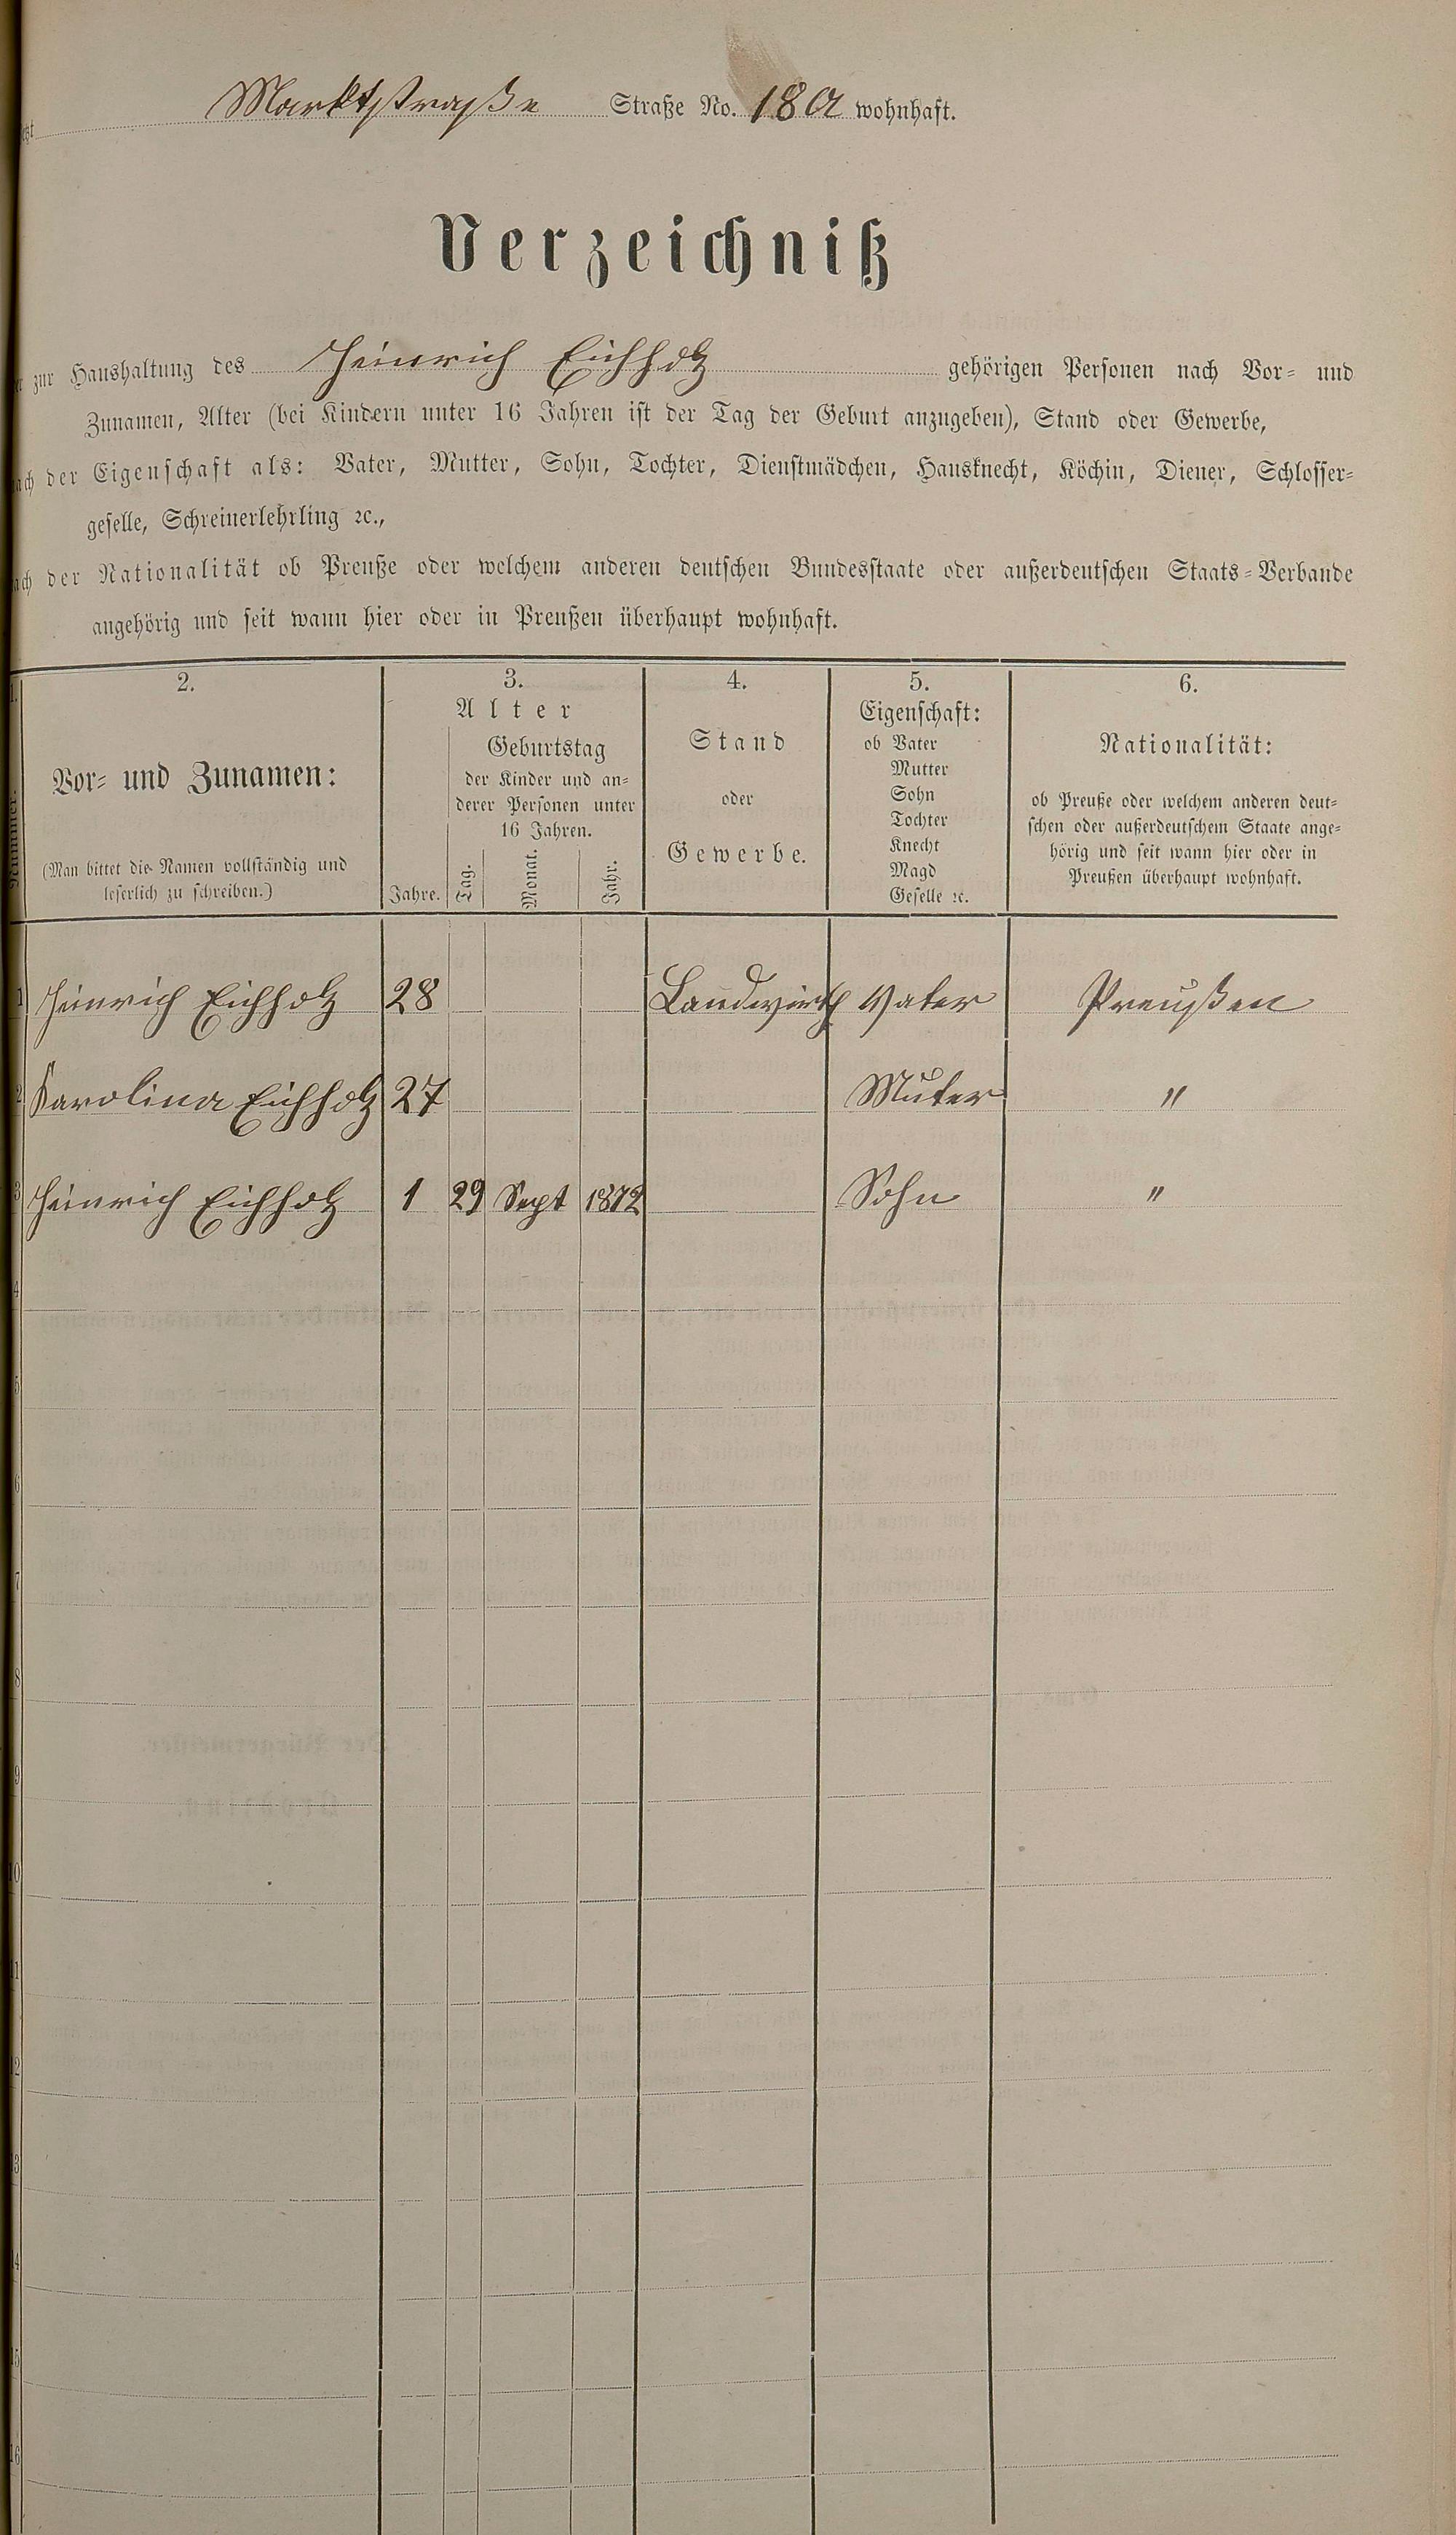 Marktstraße Straße No. 18a wohnhaft.
Verzeichniß
zur Haushaltung des Heinrich Eichholz gehörigen Personen nach Vor- und
Zunamen, Alter (bei Kindern unter 16 Jahren ist der Tag der Geburt anzugeben), Stand oder Gewerbe,
der Eigenschaft als: Vater, Mutter, Sohn, Tochter, Dienstmädchen, Hausknecht, Köchin, Diener, Schlosser-
geselle, Schreinerlehrling ꝛc.,
der Nationalität ob Preuße oder welchem anderen deutschen Bundesstaate oder außerdeutschen Staats-Verbande
angehörig und seit wann hier oder in Preußen überhaupt wohnhaft.
1. 2. 3. 4. 5. 6.
Nummer.
Vor- und Zunamen:
(Man bittet die Namen vollständig und
leserlich zu schreiben.)
Alter
Jahre.
Geburtstag
der Kinder und an-
derer Personen unter
16 Jahren.
Tag. Monat. Jahr.
Stand
oder
Gewerbe.
Eigenschaft:
ob Vater
Mutter
Sohn
Tochter
Knecht
Magd
Geselle ꝛc.
Nationalität:
ob Preuße oder welchem anderen deut-
schen oder außerdeutschem Staate ange-
hörig und seit wann hier oder in
Preußen überhaupt wohnhaft.
1 Heinrich Eichholz 28 Landwirth Vater Preußen
2 Karolina Eichholz 27 Muter "
3 Heinrich Eichholz 1 29 Sept 1872 Sohn "
4
5
6
7
8
9
10
11
12
13
14
15
16